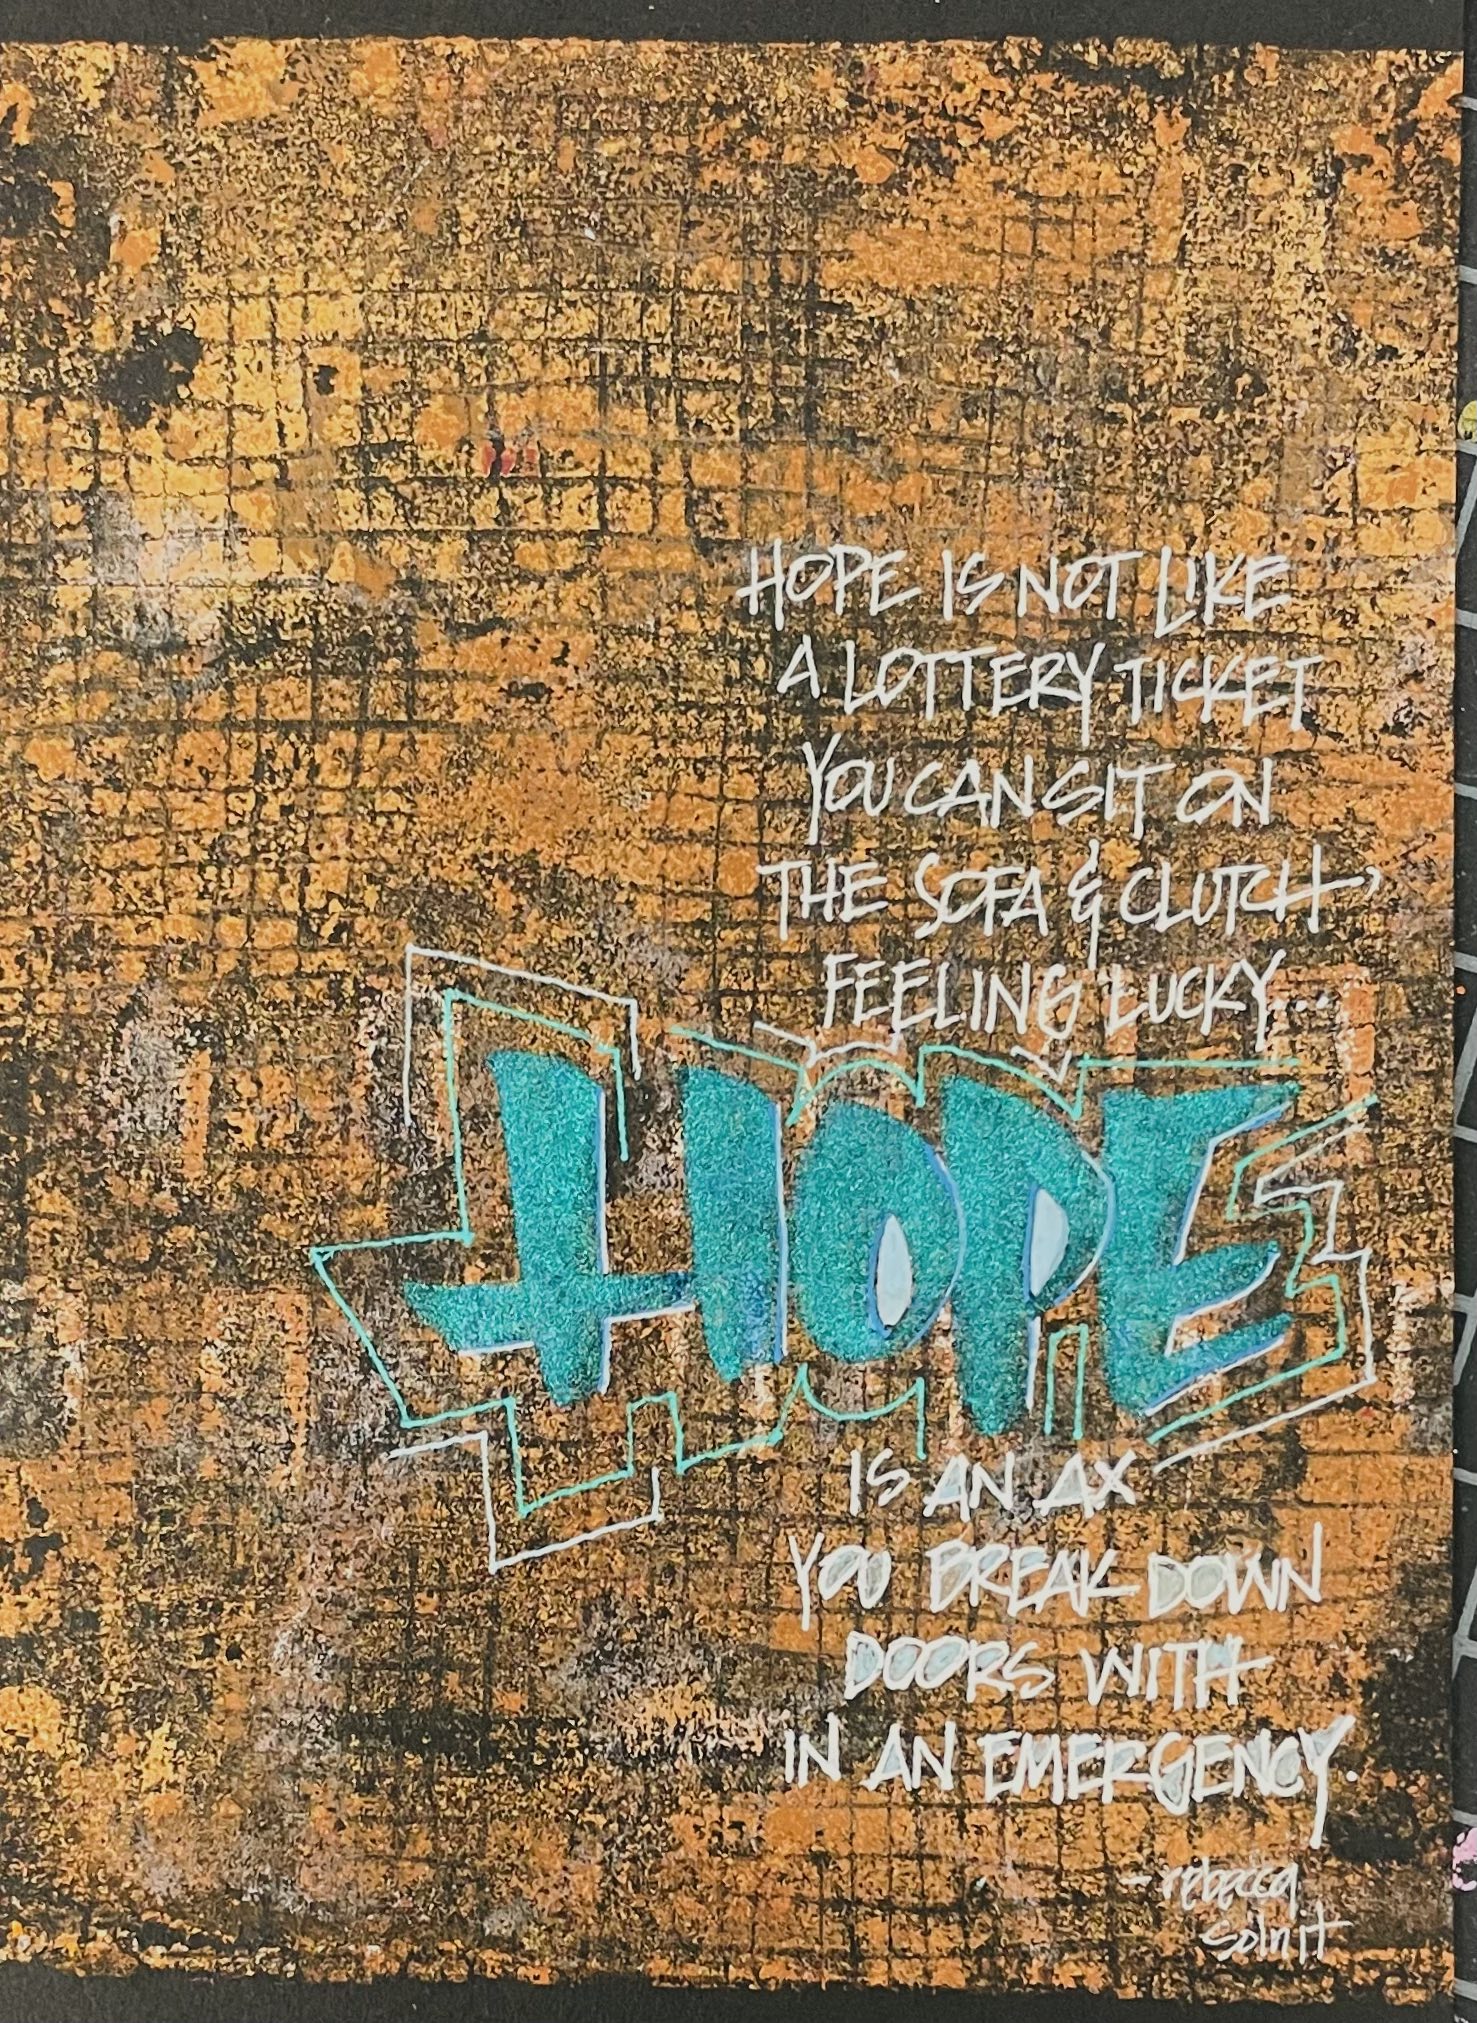 HOPE IS NOT LIKE
A LOTTERY TICKET
YOU CAN SIT ON
THE SOFA & CLUTCH,
FEELING LUCKY...
HOPE
IS AN AX
YOU BREAK DOWN
DOORS WITH
IN AN EMERGENCY.
- rebecca
solnit